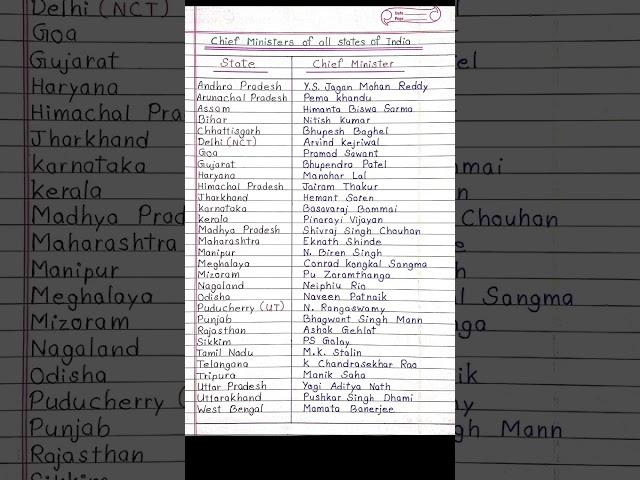 Date
Page
Chief Ministers of all states of India
State Chief Minister
Andhra Pradesh Y.S. Jagan Mohan Reddy
Arunachal Pradesh Pema Khandu
Assam Himanta Biswa Sarma
Bihar Nitish Kumar
Chhattisgarh Bhupesh Baghel
Delhi (NCT) Arvind Kejriwal
Goa Pramod Sawant
Gujarat Bhupendra Patel
Haryana Manohar Lal
Himachal Pradesh Jairam Thakur
Jharkhand Hemant Soren
Karnataka Basavaraj Bommai
Kerala Pinarayi Vijayan
Madhya Pradesh Shivraj Singh Chouhan
Maharashtra Eknath Shinde
Manipur N. Biren Singh
Meghalaya Conrad Kongkal Sangma
Mizoram Pu Zoramthanga
Nagaland Neiphiu Rio
Odisha Naveen Patnaik
Puducherry (UT) N. Rangaswamy
Punjab Bhagwant Singh Mann
Rajasthan Ashok Gehlot
Sikkim PS Golay
Tamil Nadu M.K. Stalin
Telangana K Chandrasekhar Rao
Tripura Manik Saha
Uttar Pradesh Yogi Aditya Nath
Uttarakhand Pushkar Singh Dhami
West Bengal Mamata Banerjee
Delhi (NCT)
Goa
Gujarat el
Haryana
Himachal Pra
Jharkhand
Karnataka mai
Kerala n
Madhya Prad Chouhan
Maharashtra e
Manipur
Meghalaya l Sangma
Mizoram nga
Nagaland
Odisha ik
Puducherry ( y
Punjab gh Mann
Rajasthan